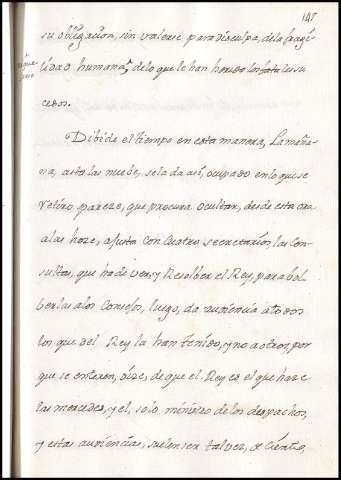 147
su obligacion, sin valerse para disculpa, de la fragi-
lidad humana, de lo que le han horido los fatales su
cesos.
Dibide el tiempo en esta manera, La maña-
na, asta las nuebe, se la da asi, ocupado en lo que se
retiro pareze, que procura ocultar, desde esta ora
a las honze, ajusta con cuatro secretarios, las con-
sultas, que ha de ver, y Resolber el Rey, para bol
berlas a los Consejos, luego, da audiencia a todos
los que del Rey la han tenido, y no a otros, por
que se enteren, dize, de que el Rey es el que haze
las mercedes, y el, solo ministro de los despachos,
y estas audiencias, suelen ser tal vez, de Ciento,